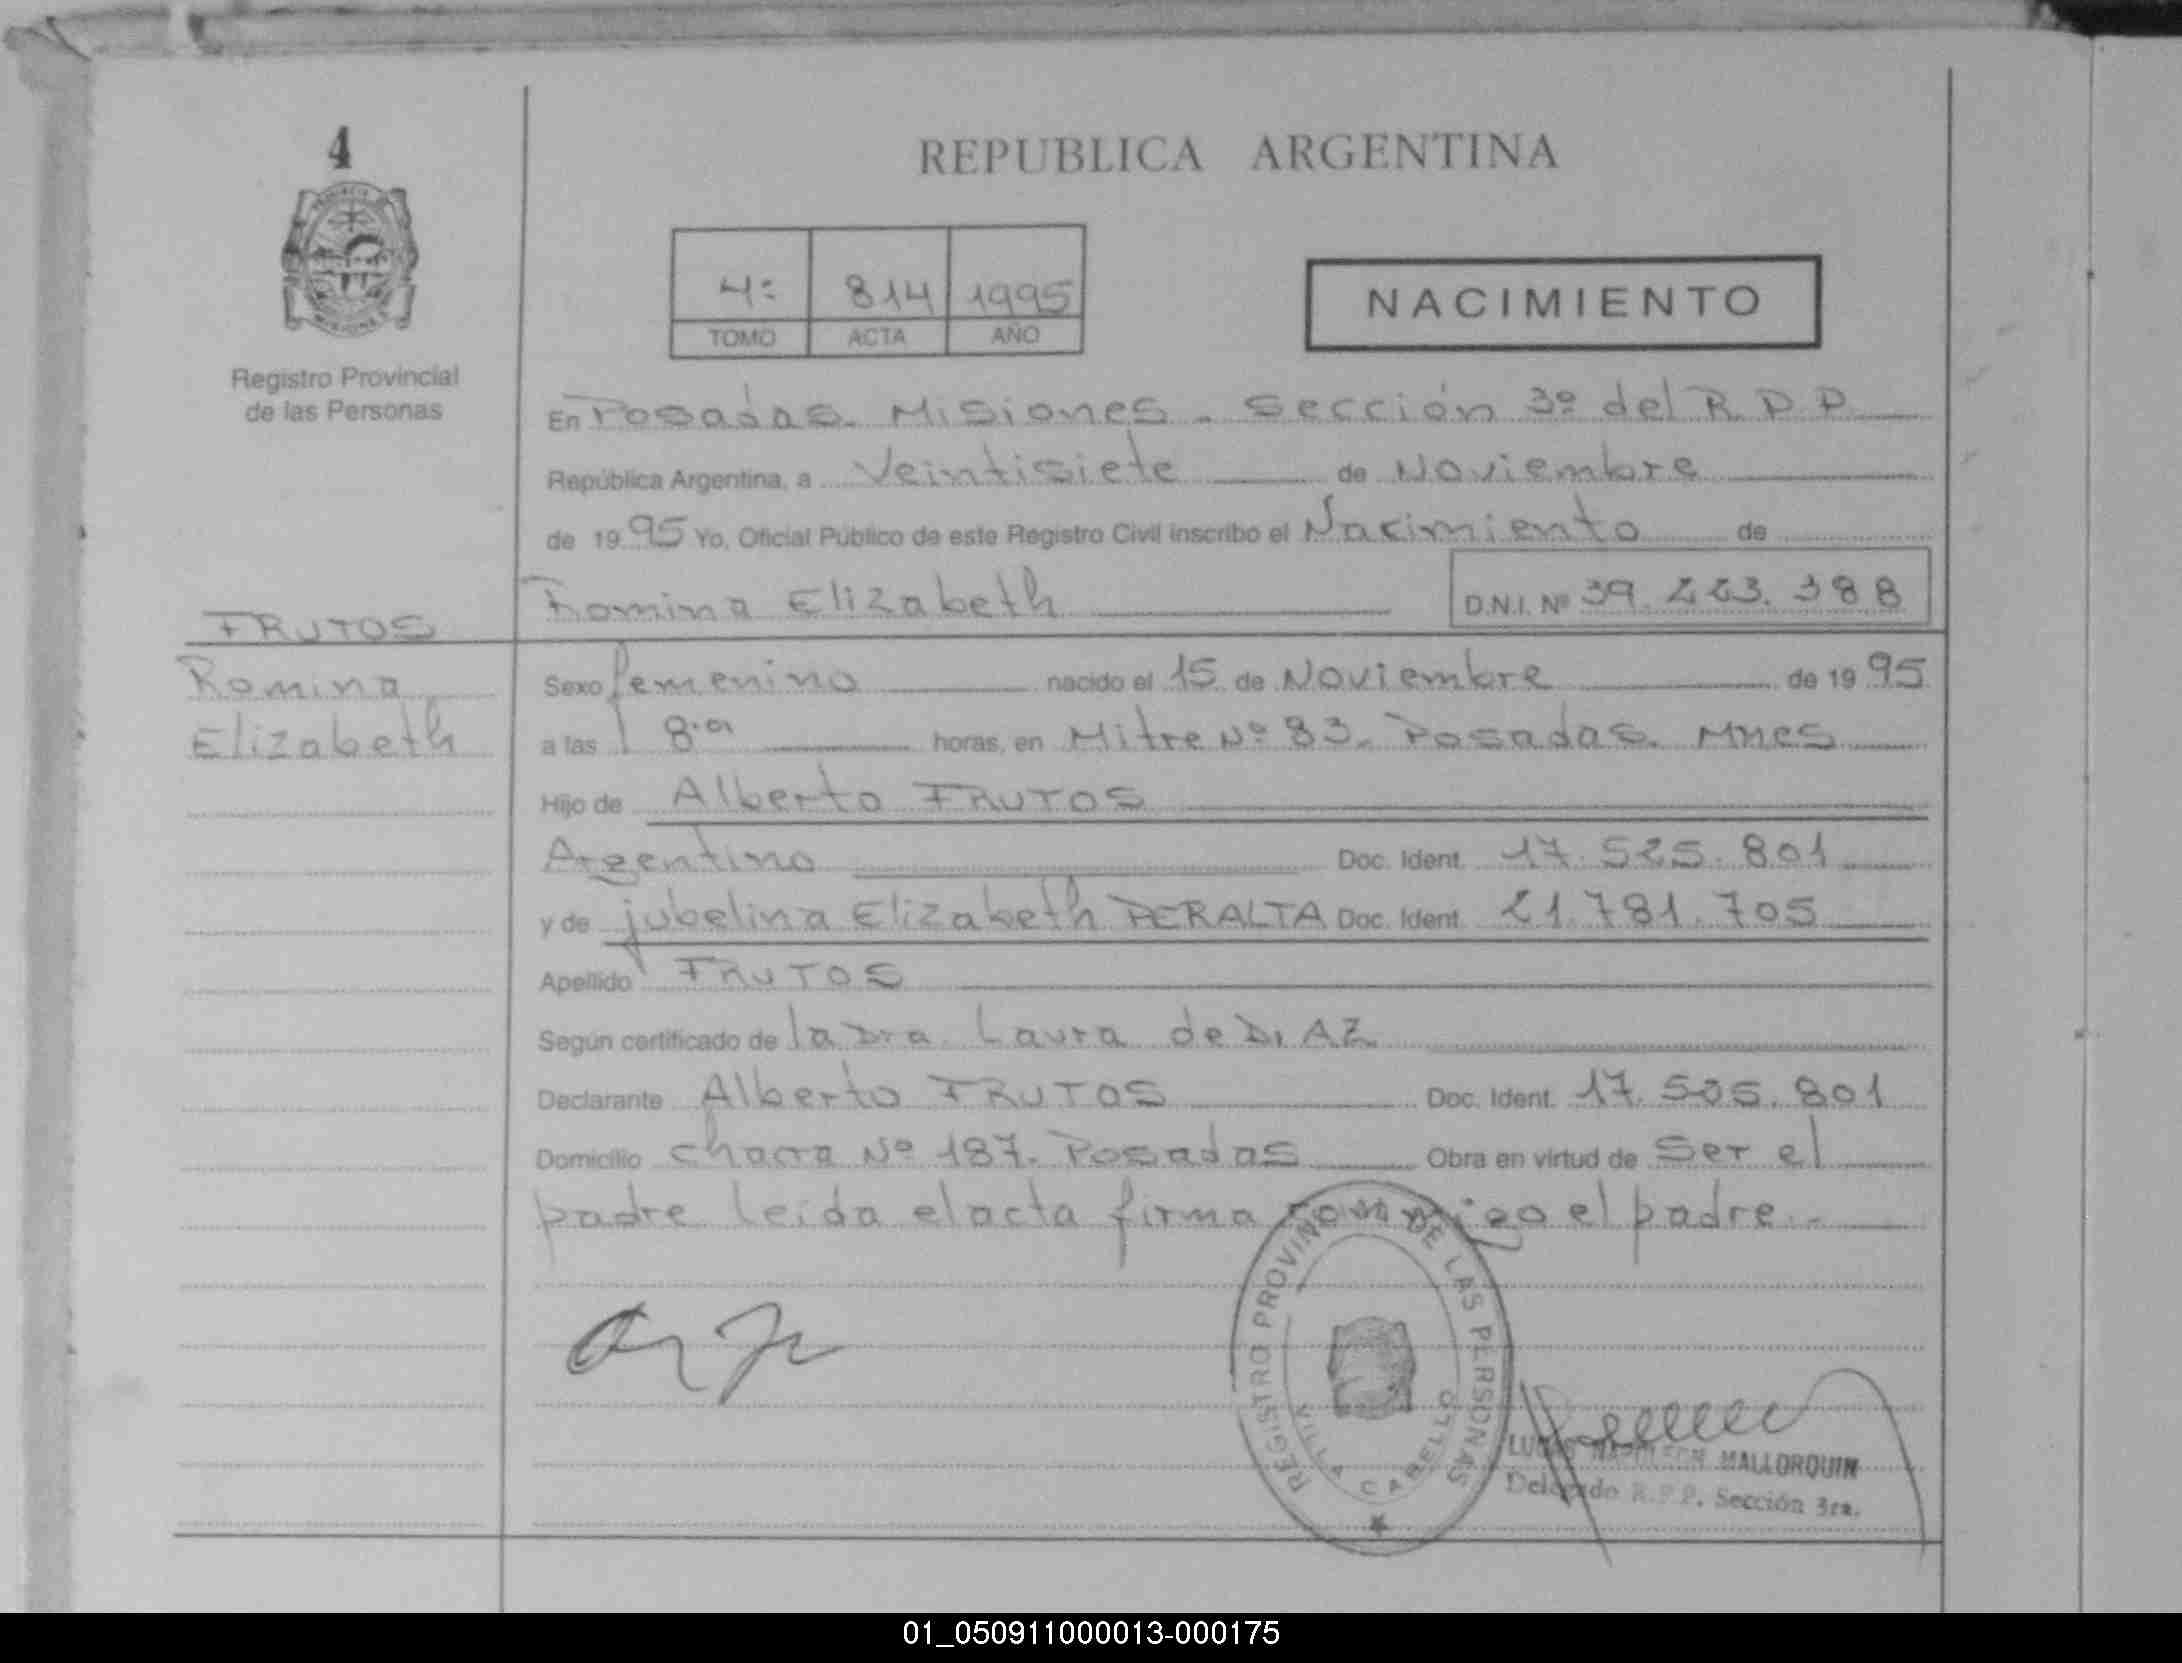 4
PROVINCIA
MISIONES
Registro Provincial
de las Personas
REPUBLICA ARGENTINA
4º 814 1995
TOMO ACTA AÑO
NACIMIENTO
En Posadas. Misiones. Sección 3º del R.P.P
República Argentina, a Veintisiete de Noviembre
de 1995 Yo, Oficial Público de este Registro Civil inscribo el Nacimiento de
Romina Elizabeth D.N.I. Nº 39.223.388
FRUTOS
Romina
Elizabeth
Sexo femenino nacido el 15 de Noviembre de 1995
a las 8 horas, en Mitre Nº 83. Posadas. Mnes
Hijo de Alberto FRUTOS
Argentino Doc. Ident. 17.525.801
y de jubelina Elizabeth PERALTA Doc. Ident. 21.781.705
Apellido FRUTOS
Según certificado de la Dra Laura de DIAZ
Declarante Alberto FRUTOS Doc. Ident. 17.525.801
Domicilio chacra Nº 187. Posadas Obra en virtud de Ser el
padre leida el acta firma conmigo el padre.-
REGISTRO PROVINCIAL DE LAS PERSONAS
VILLA CABELLO
LUCAS NAPOLEON MALLORQUIN
Delegado R.P.P. Sección 3ra.
01_050911000013-000175